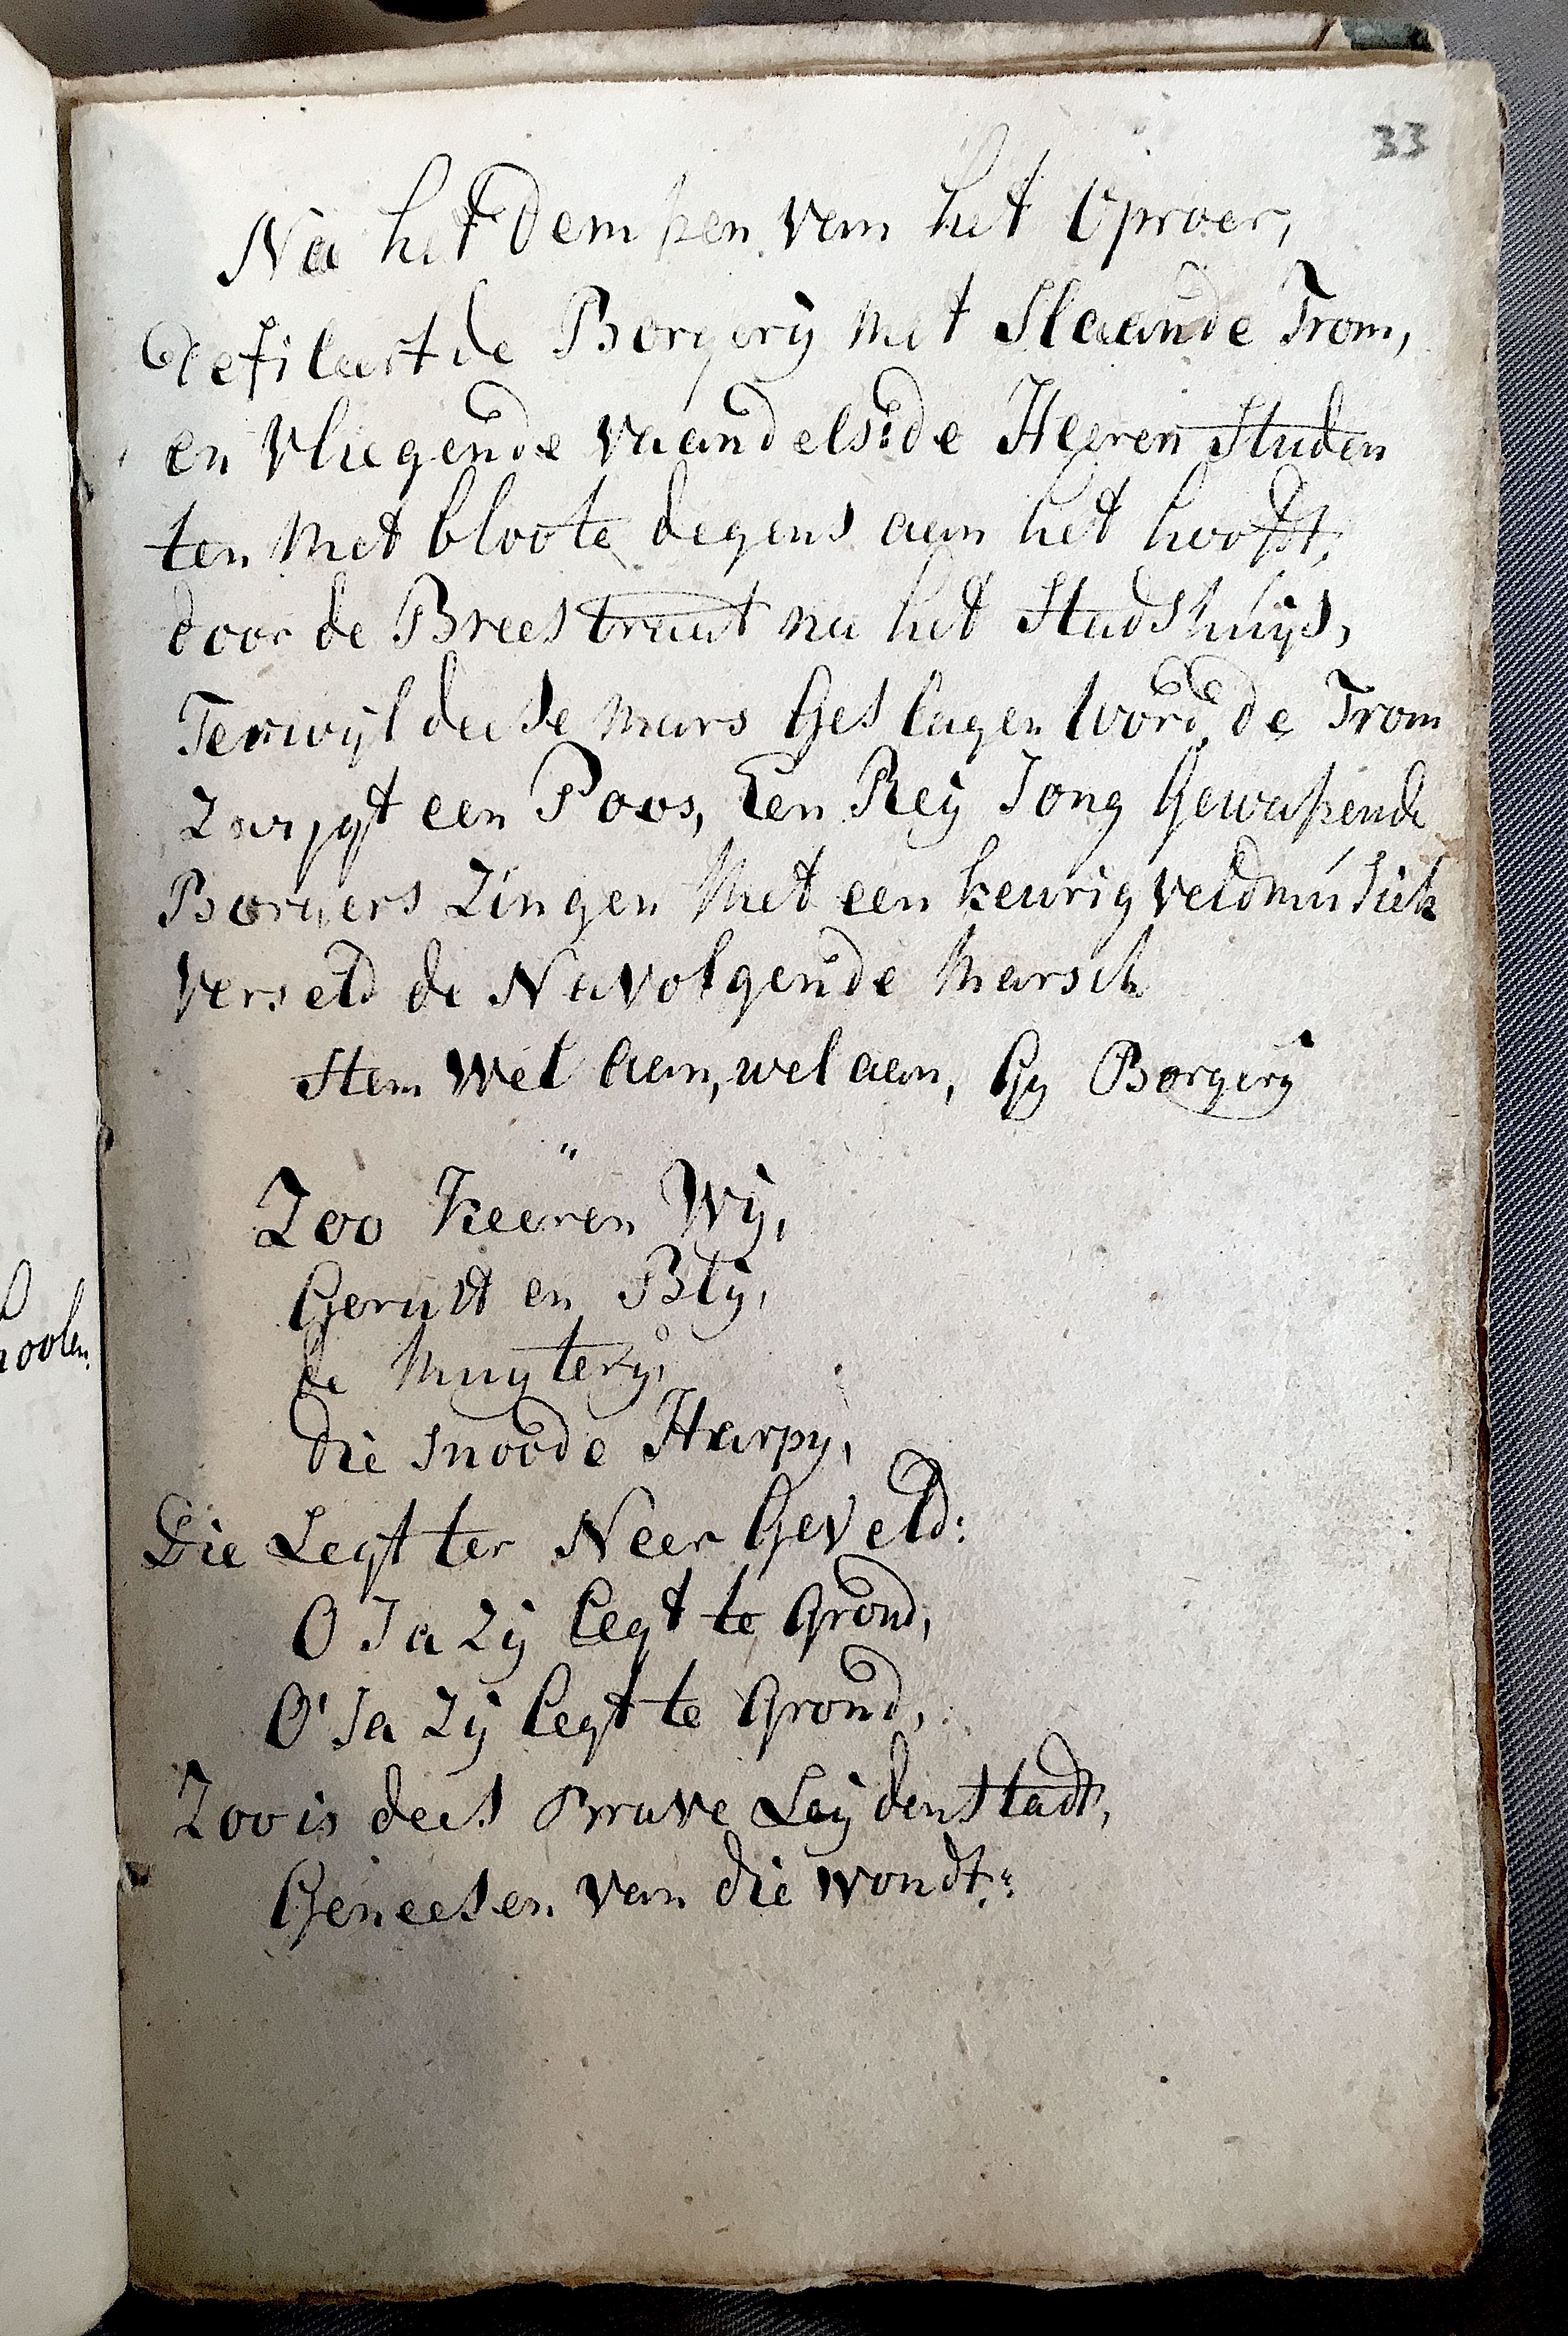 33
Na het dempen van het Oproer,
defileert de Borgerij met Slaande Trom,
en Vliegende Vaandels: de Heeren Studen
ten Met bloote degens aan het hooft,
door de Breestraat na het Stadshuijs,
Terwijl deese Mars Geslagen word, de Trom
Zwijgt een Poos, Een Reij Jong Gewapende
Borgers Zingen Met een keurig veldmusiek
Verseld de Navolgende Marsch
Stem Wel aan, wel aan, Gij Borgerij
Zoo Keeren Wij,
Gerust en Blij,
de Muijterij,
die snoode Harpy,
Die Legt ter Neer Geveld:
O Ja Zij legt te Grond,
O' Ja Zij legt te Grond,
Zoo is dees Brave Leijdenstadt,
Geneesen van die wondt:
hoolen.